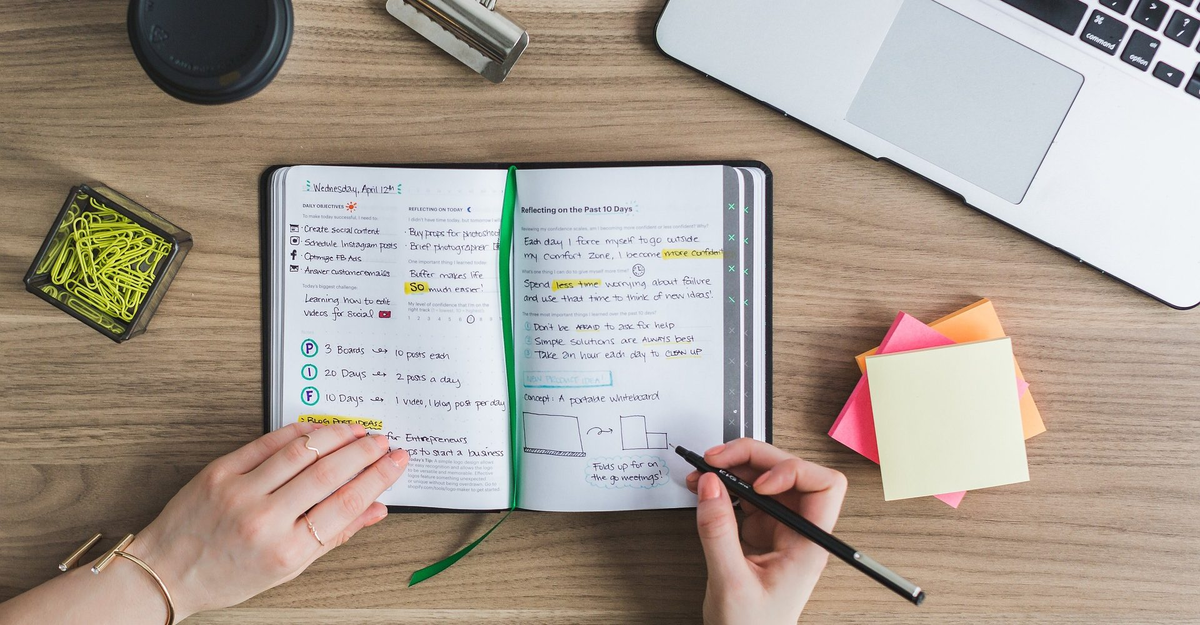 command
option
alt
Wednesday, April 12th
DAILY OBJECTIVES
To make today successful, I need to:
Create social content
Schedule Instagram posts
Optimize FB Ads
Answer customer emails
Today's biggest challenge:
Learning how to edit
videos for social
REFLECTING ON TODAY
I didn't have time today, but tomorrow I will
Buy props for photoshoot
Brief photographer
One important thing I learned:
Buffer makes life
SO much easier!
My level of confidence that I'm on the
right track (1 = lowest, 10 = highest):
P 3 Boards → 10 posts each
I 20 Days → 2 posts a day
F 10 Days → 1 video, 1 blog post per day
BLOG POST IDEAS:
for Entrepreneurs
to start a business
Today's Tip: A simple logo design allows
for easy recognition and allows the logo
to be versatile and memorable. Effective
logos feature something unexpected
or unique without being overdrawn. Go to
Reflecting on the Past 10 Days
Reviewing my confidence scales, am I becoming more confident or less confident? Why?
Each day I force myself to go outside
my comfort zone, I become more confident
What's one thing I can do to give myself more time?
Spend less time worrying about failure
and use that time to think of new ideas!
The three most important things I learned over the past 10 days:
1 Don't be AFRAID to ask for help
2 Simple solutions are ALWAYS best
3 Take an hour each day to CLEAN UP
NEW PRODUCT IDEA!
Concept: A portable whiteboard
Folds up for on
the go meetings!